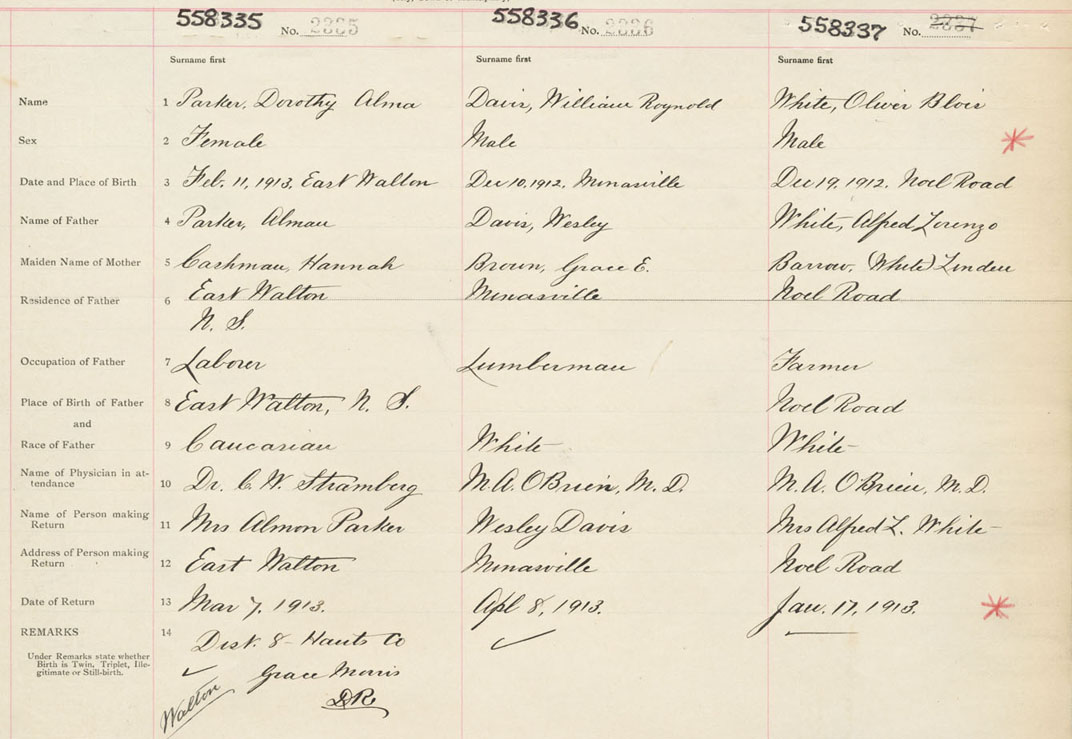 558335 No. 2335 558336 No. 2336 558337 No. 2337
Surname first Surname first Surname first
Name 1 Parker, Dorothy Alma Davis, William Roynold White, Oliver Blois
Sex 2 Female Male Male
Date and Place of Birth 3 Feb. 11, 1913, East Walton Dec 10, 1912, Minasville Dec 19, 1912, Noel Road
Name of Father 4 Parker, Almau Davis, Wesley White, Alfred Lorenzo
Maiden Name of Mother 5 Cashman, Hannah Brown, Grace E. Barrow, (White) Linden
Residence of Father 6 East Walton Minasville Noel Road
N. S.
Occupation of Father 7 Laborer Lumberman Farmer
Place of Birth of Father 8 East Walton, N. S. Noel Road
and
Race of Father 9 Caucasian White White
Name of Physician in at-
tendance 10 Dr. C. W. Stramberg M.A. O'Brien, M. D. M. A. O'Brien, M. D.
Name of Person making
Return 11 Mrs Almon Parker Wesley Davis Mrs Alfred L. White
Address of Person making
Return 12 East Walton Minasville Noel Road
Date of Return 13 Mar 7, 1913. Apl 8, 1913. Jan. 17, 1913.
REMARKS 14 Dist. 8 - Hants Co
Under Remarks state whether
Birth is Twin, Triplet, Ille-
gitimate or Still-birth.
Grace Morris
DR
Walton